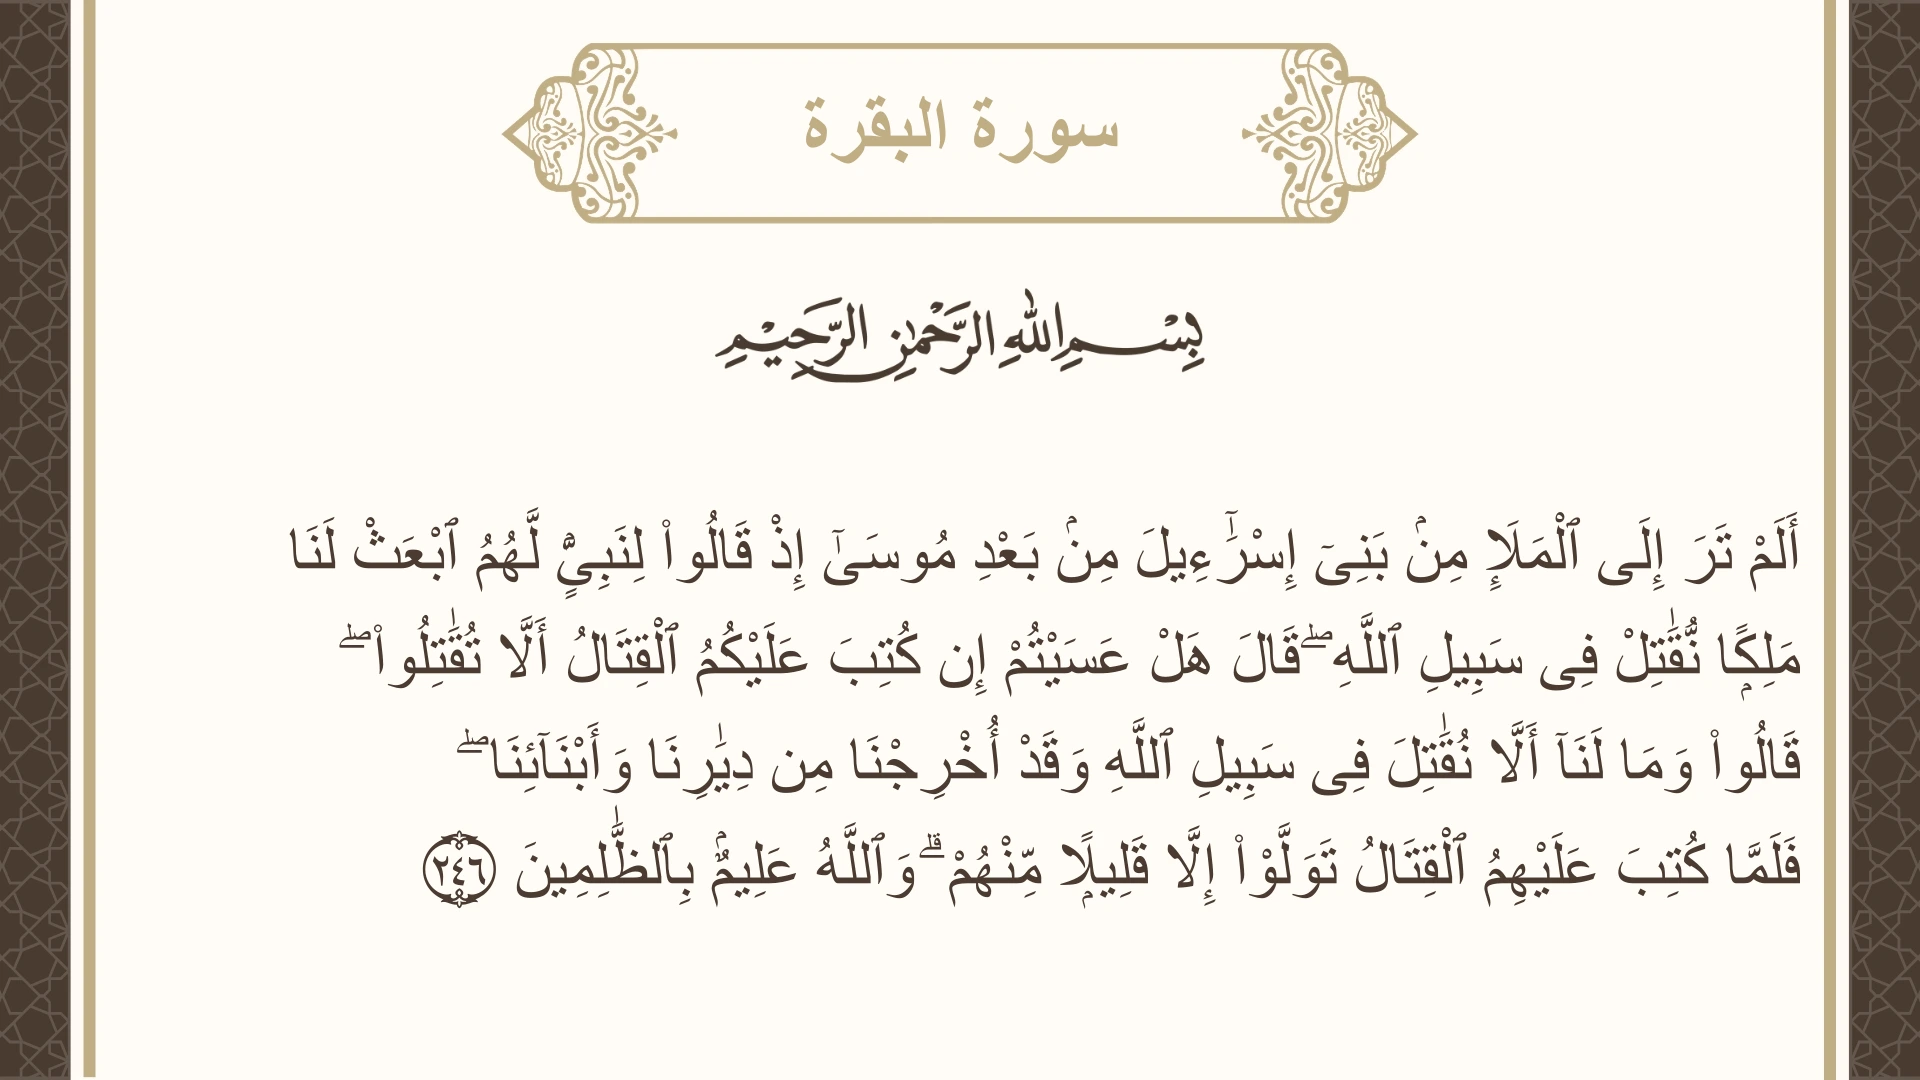 سورة البقرة
بِسْمِ اللهِ الرَّحْمٰنِ الرَّحِيْمِ
أَلَمْ تَرَ إِلَى ٱلْمَلَإِ مِنۢ بَنِىٓ إِسْرَٰٓءِيلَ مِنۢ بَعْدِ مُوسَىٰٓ إِذْ قَالُوا۟ لِنَبِىٍّۢ لَّهُمُ ٱبْعَثْ لَنَا
مَلِكًۭا نُّقَـٰتِلْ فِى سَبِيلِ ٱللَّهِ ۖ قَالَ هَلْ عَسَيْتُمْ إِن كُتِبَ عَلَيْكُمُ ٱلْقِتَالُ أَلَّا تُقَـٰتِلُوا۟ ۖ
قَالُوا۟ وَمَا لَنَآ أَلَّا نُقَـٰتِلَ فِى سَبِيلِ ٱللَّهِ وَقَدْ أُخْرِجْنَا مِن دِيَـٰرِنَا وَأَبْنَآئِنَا ۖ
فَلَمَّا كُتِبَ عَلَيْهِمُ ٱلْقِتَالُ تَوَلَّوْا۟ إِلَّا قَلِيلًۭا مِّنْهُمْ ۗ وَٱللَّهُ عَلِيمٌۢ بِٱلظَّـٰلِمِينَ ٢٤٦